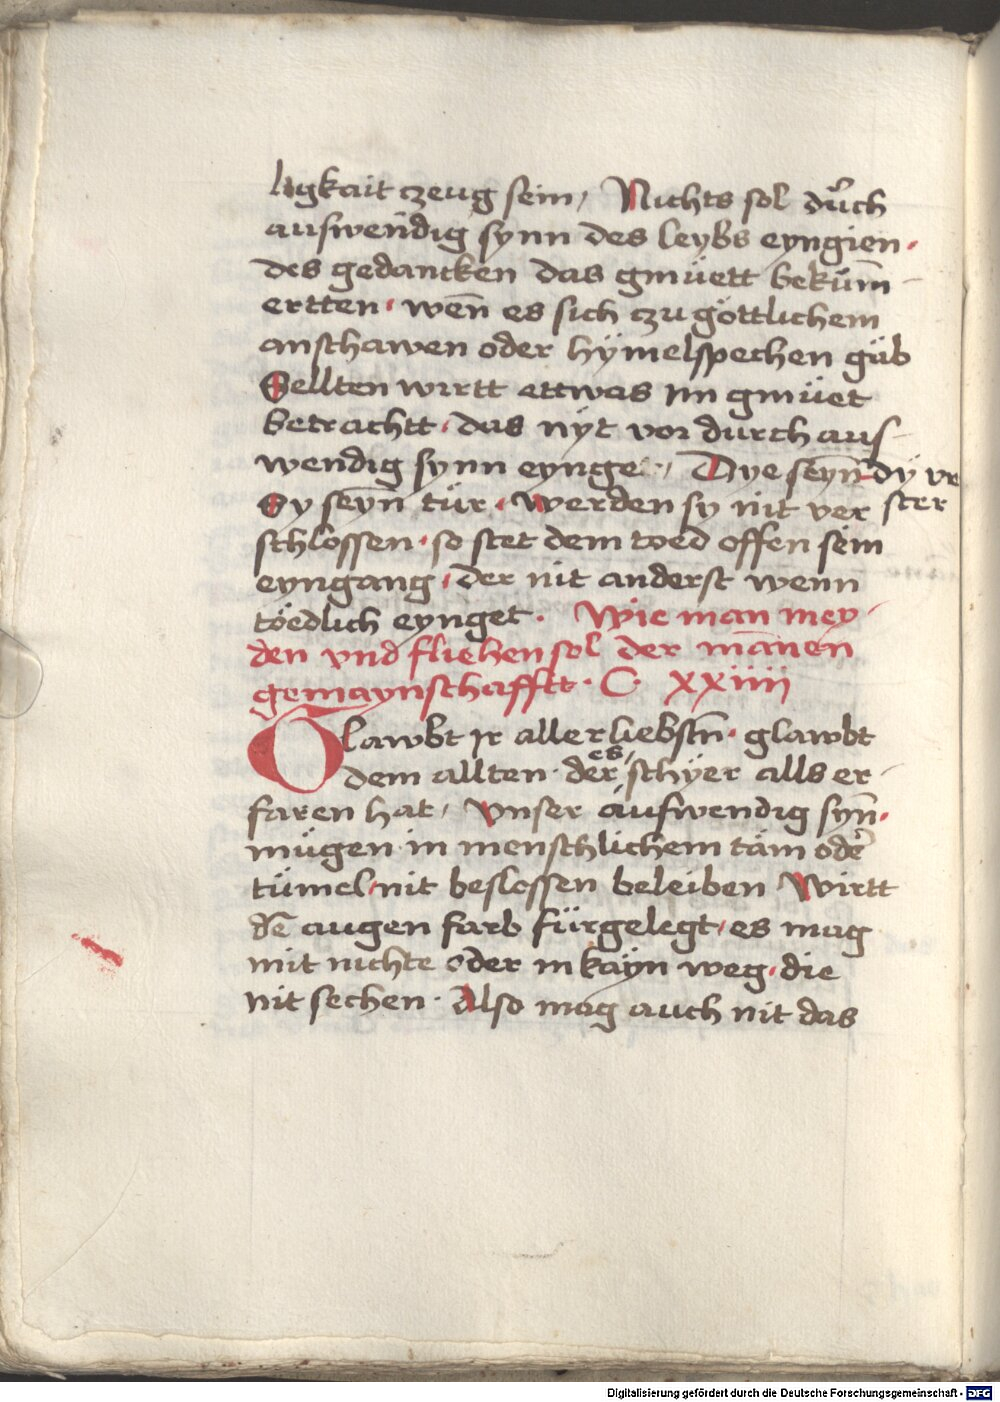 ligkait czeug sein / Nichts sol durch
auswendig synn des leybs eyngien·
des gedancken das gmüett bekūm̄
ertten· wen̄ es sich czu göttlichem
anschawen oder hÿmelspechen gäb
Sellten wirtt ettwas im gmüet
betrachtt· das nÿt vor durch aus
wendig synn eynge / Dye seyn̄ dÿ vẽ
Sy seyn̄ tür· werden sy nit ver ster
schlossen· so stet dem toed offen sein
eyngang· der nit anderst wenn
töedlich eynget· Wie man mey
den vnd fliehen sol der man̄en
gemaynschafftt· C· xxiiii
Glawbt ir allerliebstn̄· glawbt
dem allten· der es schÿer alls er
faren hat / vnser äuswendig syn̄·
mügen in menschlichem täm oder
tümel· nit beslossen beleiben Wirtt
dē augen farb fürgelegt· es mag
mit nichte oder in kayn weg· die
nit sechen· Also mag auch nit das
Digitalisierung gefördert durch die Deutsche Forschungsgemeinschaft - DFG